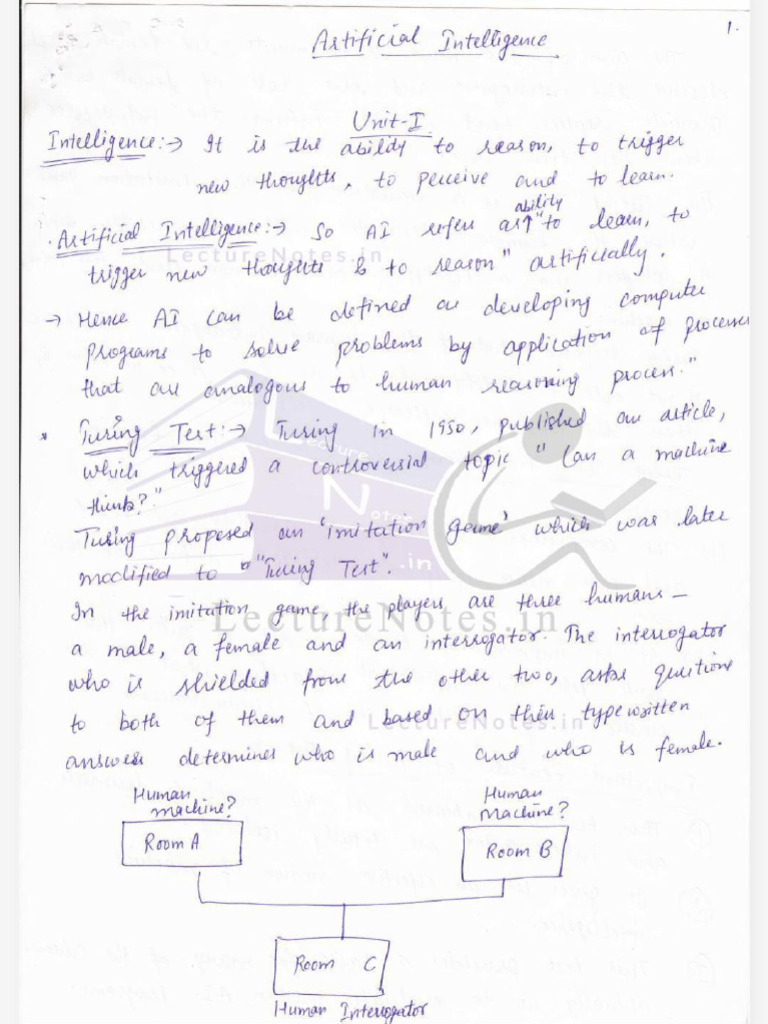 1.
Artificial Intelligence
Unit-I
Intelligence:→ It is the ability to reason, to trigger
new thoughts, to perceive and to learn.
ability
Artificial Intelligence:→ So AI refers as↑"to learn, to
trigger new thoughts & to reason" artificially.
→ Hence AI can be defined as developing computer
programs to solve problems by application of processes
that are analogous to human reasoning process."
* Turing Test:→ Turing in 1950, published an article,
which triggered a controversial topic "Can a machine
think?"
Turing proposed an 'imitation game' which was later
modified to "Turing Test".
In the imitation game, the players are three humans –
a male, a female and an interrogator. The interrogator
who is shielded from the other two, asks questions
to both of them and based on their typewritten
answers determines who is male and who is female.
Human Human
machine? Machine?
Room A Room B
Room C
Human Interrogator
LectureNotes.in
Lecture
Notes
.in
LectureNotes.in
LectureNotes.in